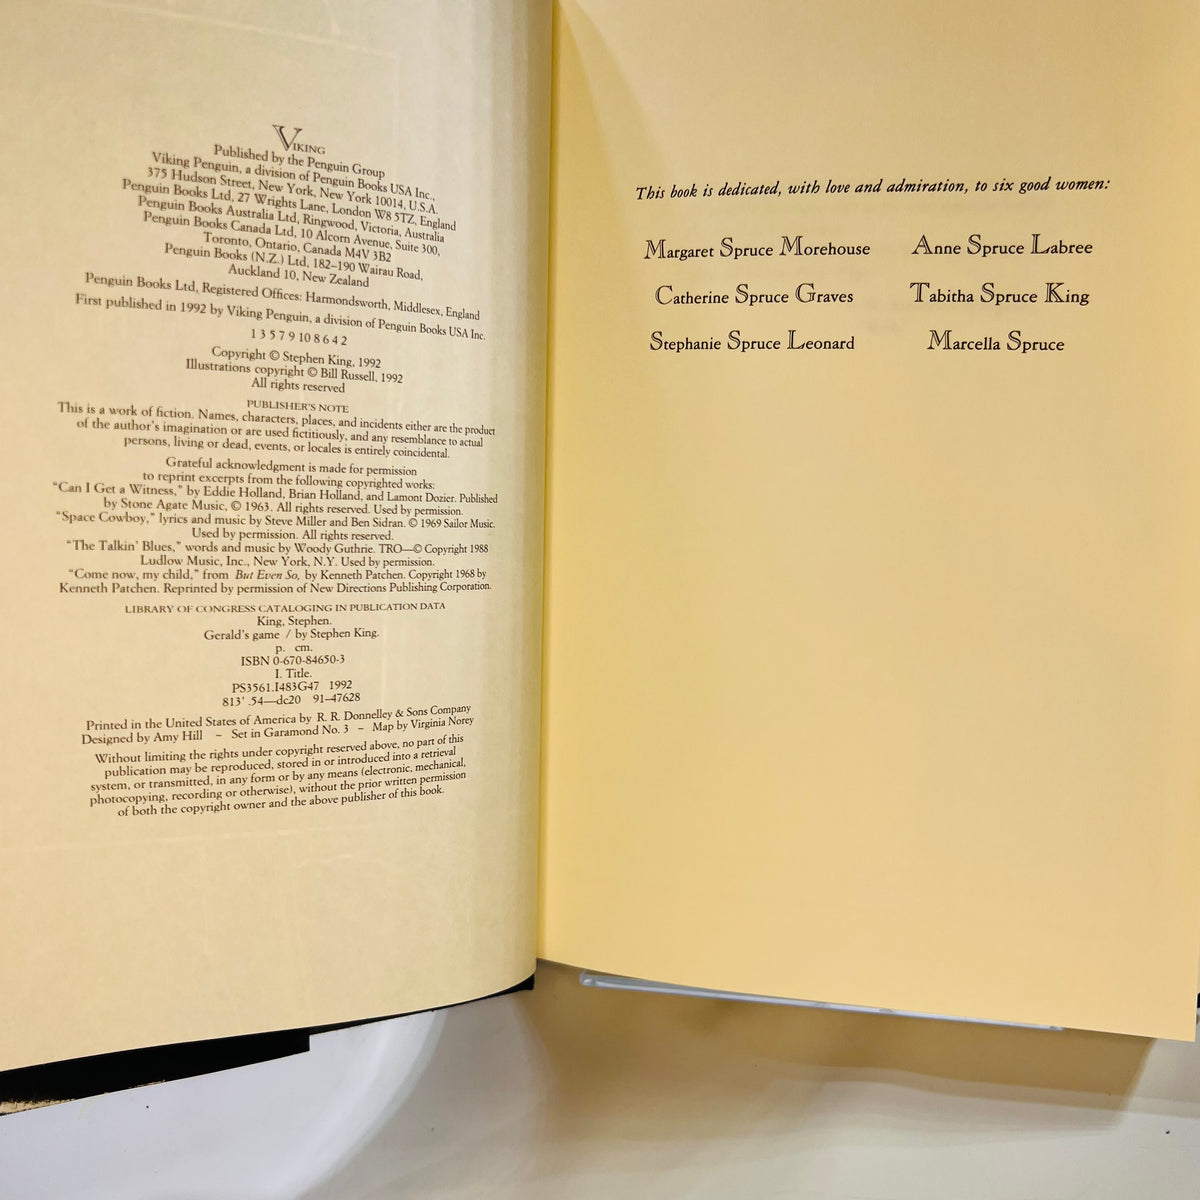 VIKING
Published by the Penguin Group
Viking Penguin, a division of Penguin Books USA Inc.,
375 Hudson Street, New York, New York 10014, U.S.A.
Penguin Books Ltd, 27 Wrights Lane, London W8 5TZ, England
Penguin Books Australia Ltd, Ringwood, Victoria, Australia
Penguin Books Canada Ltd, 10 Alcorn Avenue, Suite 300,
Toronto, Ontario, Canada M4V 3B2
Penguin Books (N.Z.) Ltd, 182–190 Wairau Road,
Auckland 10, New Zealand
Penguin Books Ltd, Registered Offices: Harmondsworth, Middlesex, England
First published in 1992 by Viking Penguin, a division of Penguin Books USA Inc.
1 3 5 7 9 10 8 6 4 2
Copyright © Stephen King, 1992
Illustrations copyright © Bill Russell, 1992
All rights reserved
PUBLISHER'S NOTE
This is a work of fiction. Names, characters, places, and incidents either are the product
of the author's imagination or are used fictitiously, and any resemblance to actual
persons, living or dead, events, or locales is entirely coincidental.
Grateful acknowledgment is made for permission
to reprint excerpts from the following copyrighted works:
"Can I Get a Witness," by Eddie Holland, Brian Holland, and Lamont Dozier. Published
by Stone Agate Music, © 1963. All rights reserved. Used by permission.
"Space Cowboy," lyrics and music by Steve Miller and Ben Sidran. © 1969 Sailor Music.
Used by permission. All rights reserved.
"The Talkin' Blues," words and music by Woody Guthrie. TRO—© Copyright 1988
Ludlow Music, Inc., New York, N.Y. Used by permission.
"Come now, my child," from But Even So, by Kenneth Patchen. Copyright 1968 by
Kenneth Patchen. Reprinted by permission of New Directions Publishing Corporation.
LIBRARY OF CONGRESS CATALOGING IN PUBLICATION DATA
King, Stephen.
Gerald's game / by Stephen King.
p. cm.
ISBN 0-670-84650-3
I. Title.
PS3561.I483G47 1992
813' .54—dc20 91–47628
Printed in the United States of America by R. R. Donnelley & Sons Company
Designed by Amy Hill ~ Set in Garamond No. 3 ~ Map by Virginia Norey
Without limiting the rights under copyright reserved above, no part of this
publication may be reproduced, stored in or introduced into a retrieval
system, or transmitted, in any form or by any means (electronic, mechanical,
photocopying, recording or otherwise), without the prior written permission
of both the copyright owner and the above publisher of this book.
This book is dedicated, with love and admiration, to six good women:
Margaret Spruce Morehouse Anne Spruce Labree
Catherine Spruce Graves Tabitha Spruce King
Stephanie Spruce Leonard Marcella Spruce